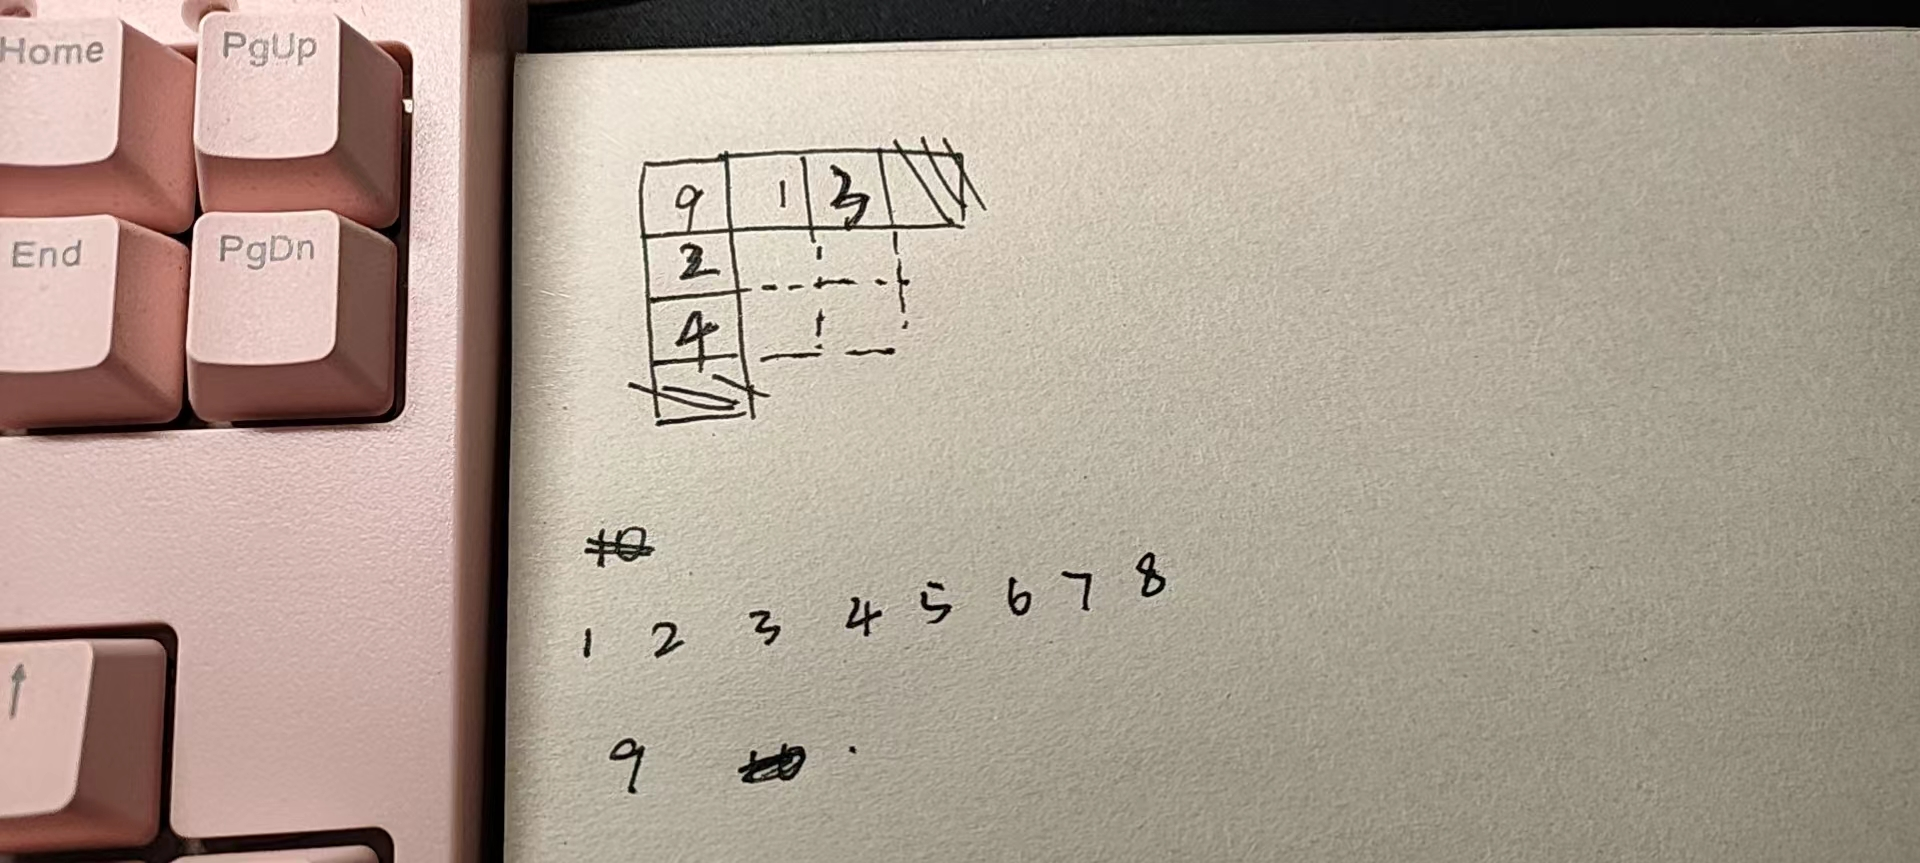 Home PgUp
End PgDn
↑
9 1 3
2
4
10
1 2 3 4 5 6 7 8
9